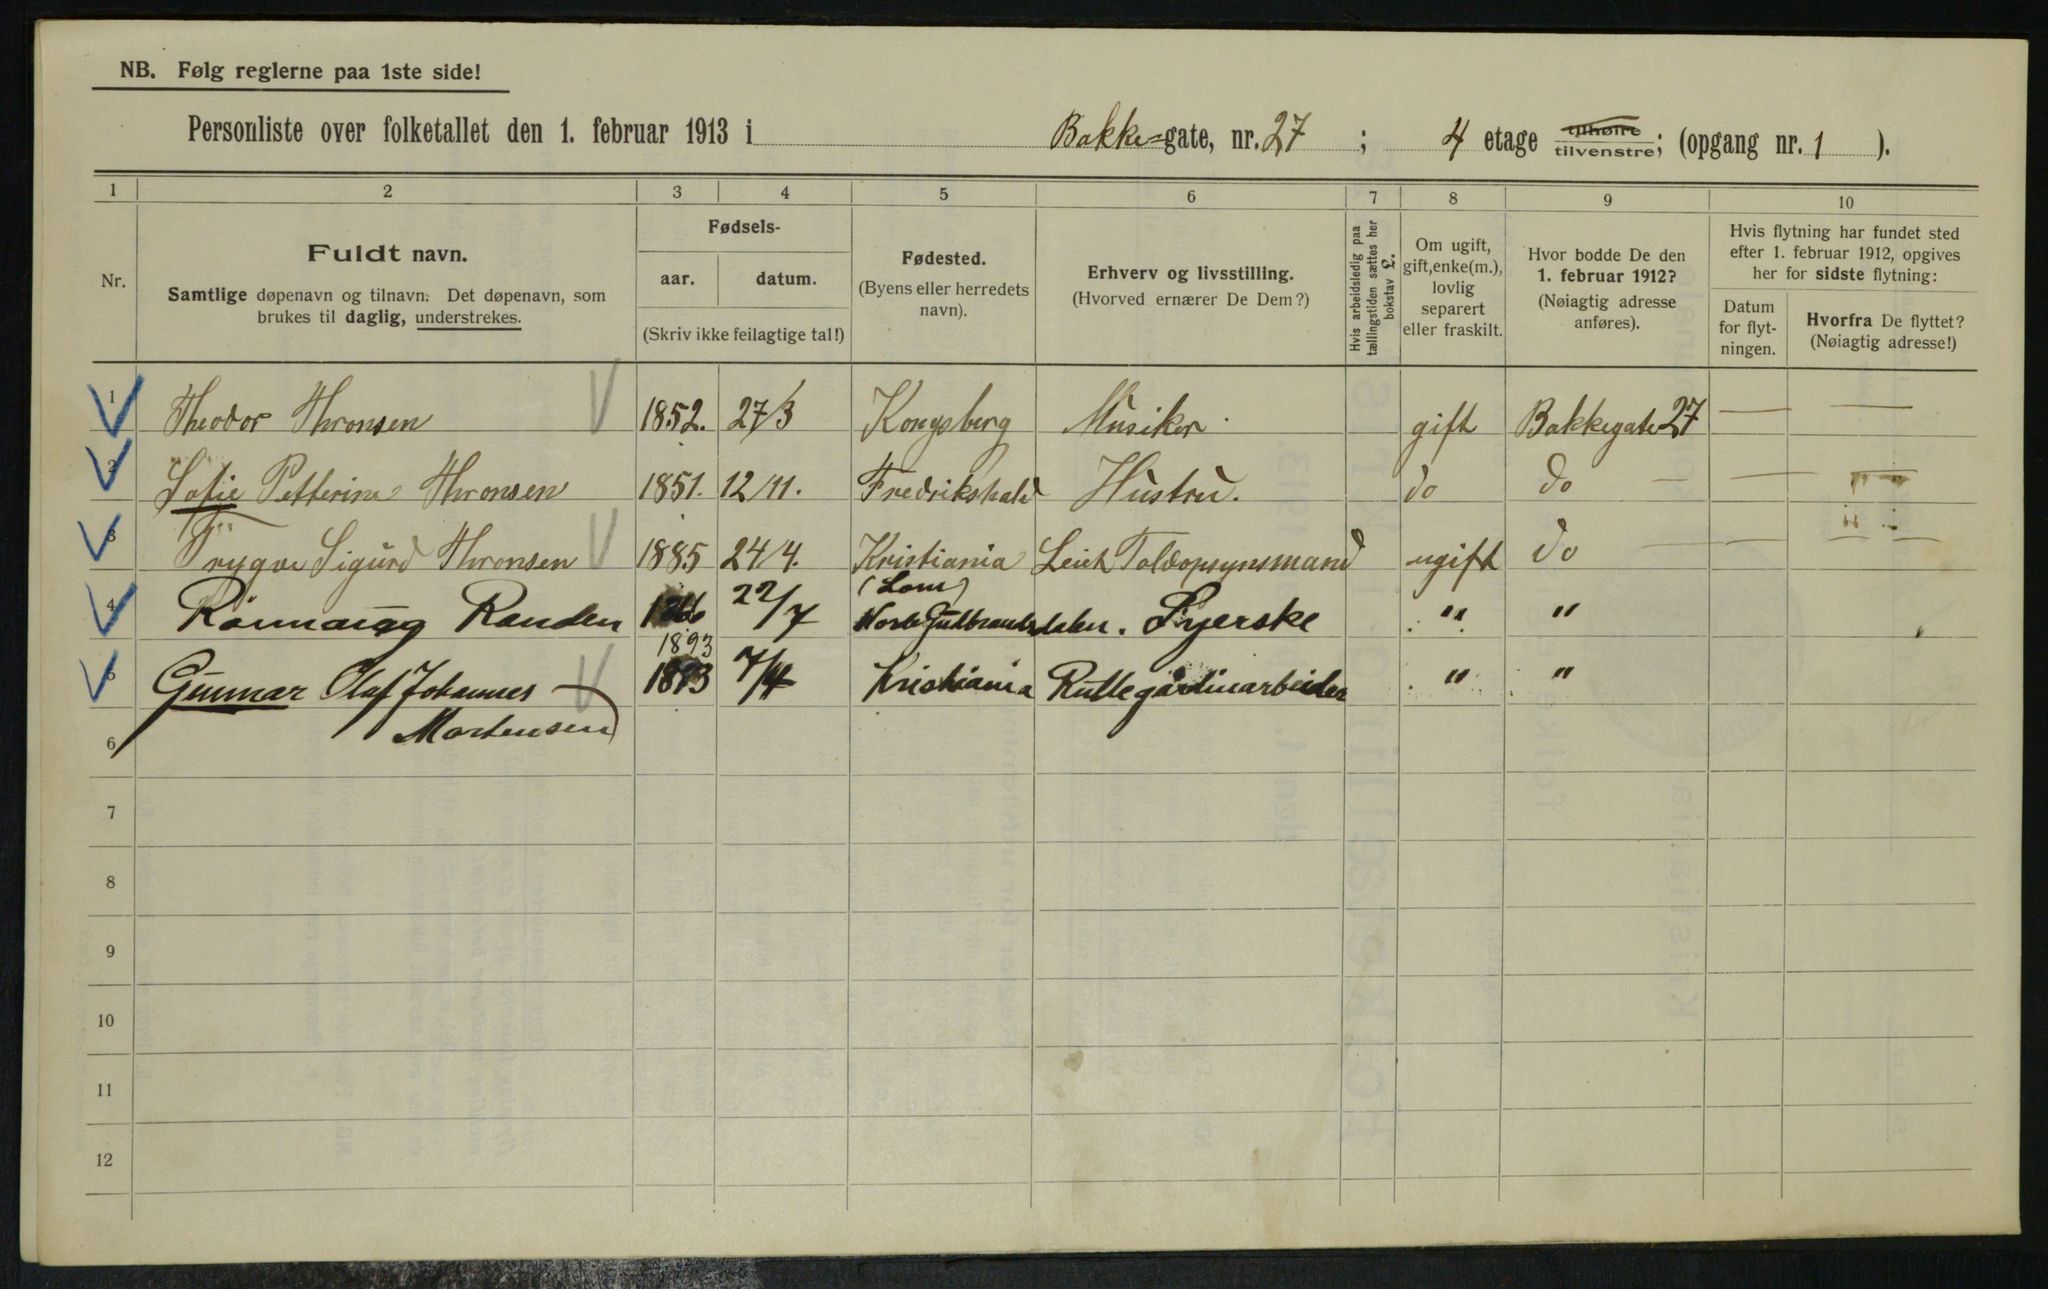 NB. Følg reglerne paa 1ste side!
Personliste over folketallet den 1. februar 1913 i Bakke=gate, nr. 27 ; 4 etage tilhøire tilvenstre; (opgang nr. 1 ).
1 2 3 4 5 6 7 8 9 10
Nr.
Fuldt navn.
Samtlige døpenavn og tilnavn. Det døpenavn, som
brukes til daglig, understrekes.
Fødsels-
aar. datum.
(Skriv ikke feilagtige tal!)
Fødested.
(Byens eller herredets
navn).
Erhverv og livsstilling.
(Hvorved ernærer De Dem?)
Hvis arbeidsledig paa
tællingstiden sættes her
bokstav L.
Om ugift,
gift, enke(m.),
lovlig
separert
eller fraskilt.
Hvor bodde De den
1. februar 1912?
(Nøiagtig adresse
anføres).
Hvis flytning har fundet sted
efter 1. februar 1912, opgives
her for sidste flytning:
Datum
for flyt-
ningen.
Hvorfra De flyttet?
(Nøiagtig adresse!)
1 Theodor Thronsen 1852. 27/3 Kongsberg Musiker gift Bakkegate 27 — —
2 Sofie Petterine Thronsen 1851. 12/11. Fredrikshald Hustru. do do — — —
3 Trygve Sigurd Thronsen 1885 24/4. Kristiania Toldopsynsmand ugift do — — —
(Lom)
4 Rönnaug Randen 22/7 Gudbrandsdalen. Syerske " "
1893
5 Gunnar Olaf Johannes 1893 7/4 Kristiania Rullegardinarbeider " "
Mortensen
6
7
8
9
10
11
12